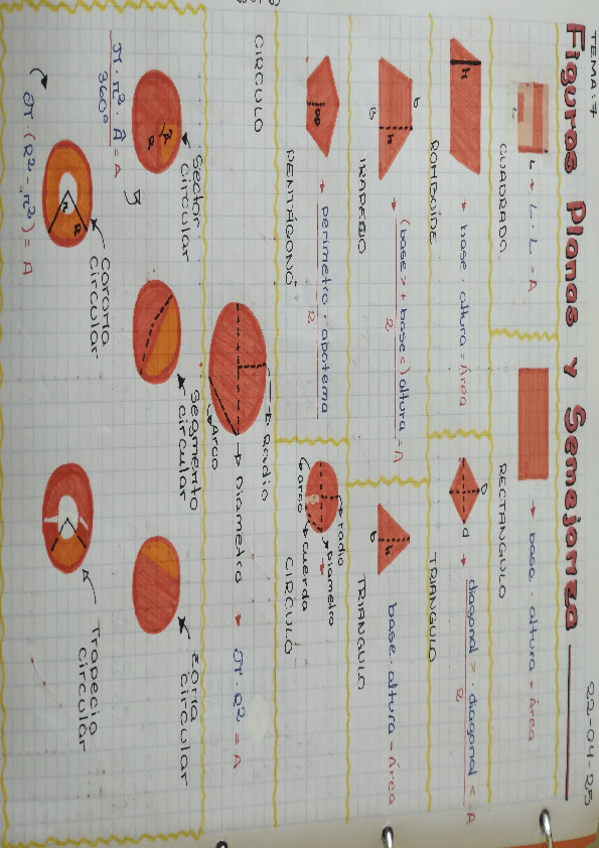 TEMA: 7
22-04-25
Figuras Planas y Semejanza
L → L · L = A
L
CUADRADO
→ base · altura = Área
RECTÁNGULO
h
→ base · altura = Área
ROMBOIDE
D
d → diagonal > · diagonal < = A
2
TRIANGULO
b
h
B
→ (base > + base <) altura = A
2
TRAPECIO
h
b
base · altura = Área
TRIANGULO
ap
→ perímetro · apotema
2
PENTÁGONO
radio
Diametro
cuerda
arco
CIRCULO
CIRCULO
Radio
Diametro → π · R² = A
Arco
Sector circular
π · r² · Â = A
360º
Segmento circular
Zona circular
Corona circular
r
R
π · (R² - r²) = A
Trapecio circular